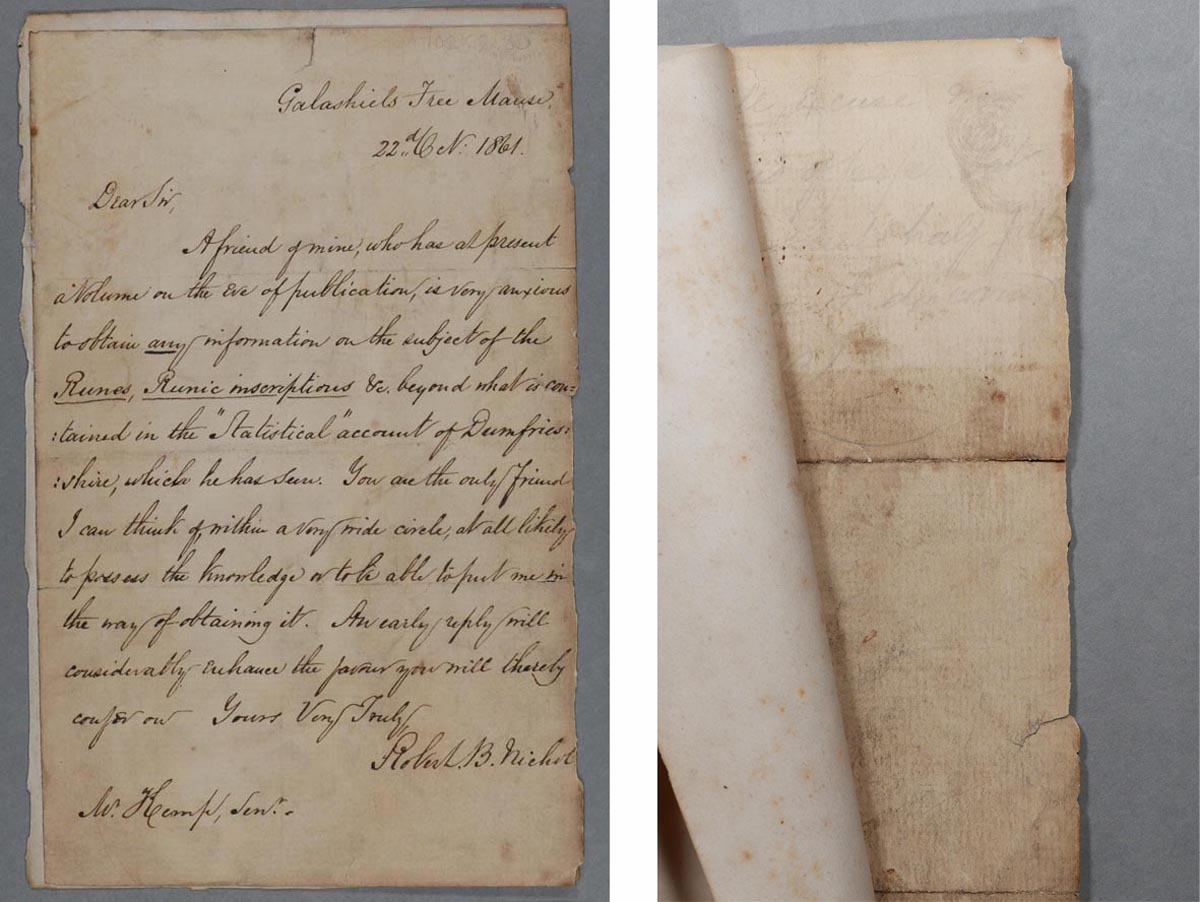 Galashiels Free Manse.
22.d Oct: 1861.
Dear Sir,
A friend of mine, who has at present
a Volume on the Eve of publication, is very anxious
to obtain any information on the subject of the
Runes, Runic inscriptions &c. beyond what is con:
:tained in the "Statistical" account of Dumfries:
:shire, which he has seen. You are the only friend
I can think of, within a very wide circle, at all likely
to possess the knowledge or to be able to put me in
the way of obtaining it. An early reply will
considerably enhance the favour you will thereby
confer on Yours Very Truly,
Robert. B. Nichol
Mr. Kemp, Senr.